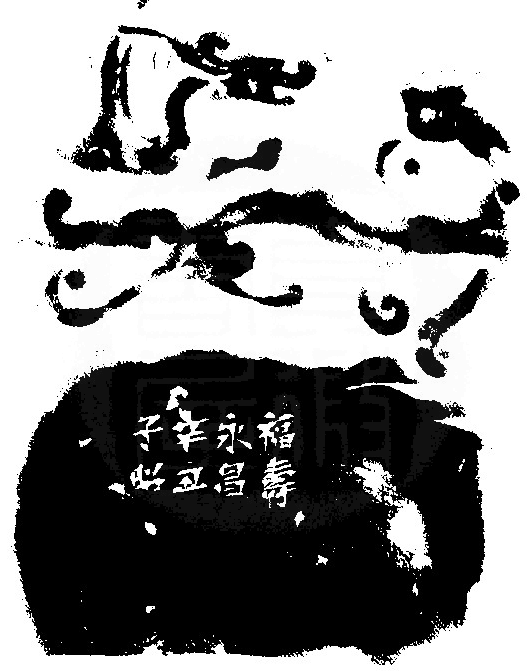 福壽
永昌
辛丑
子昭